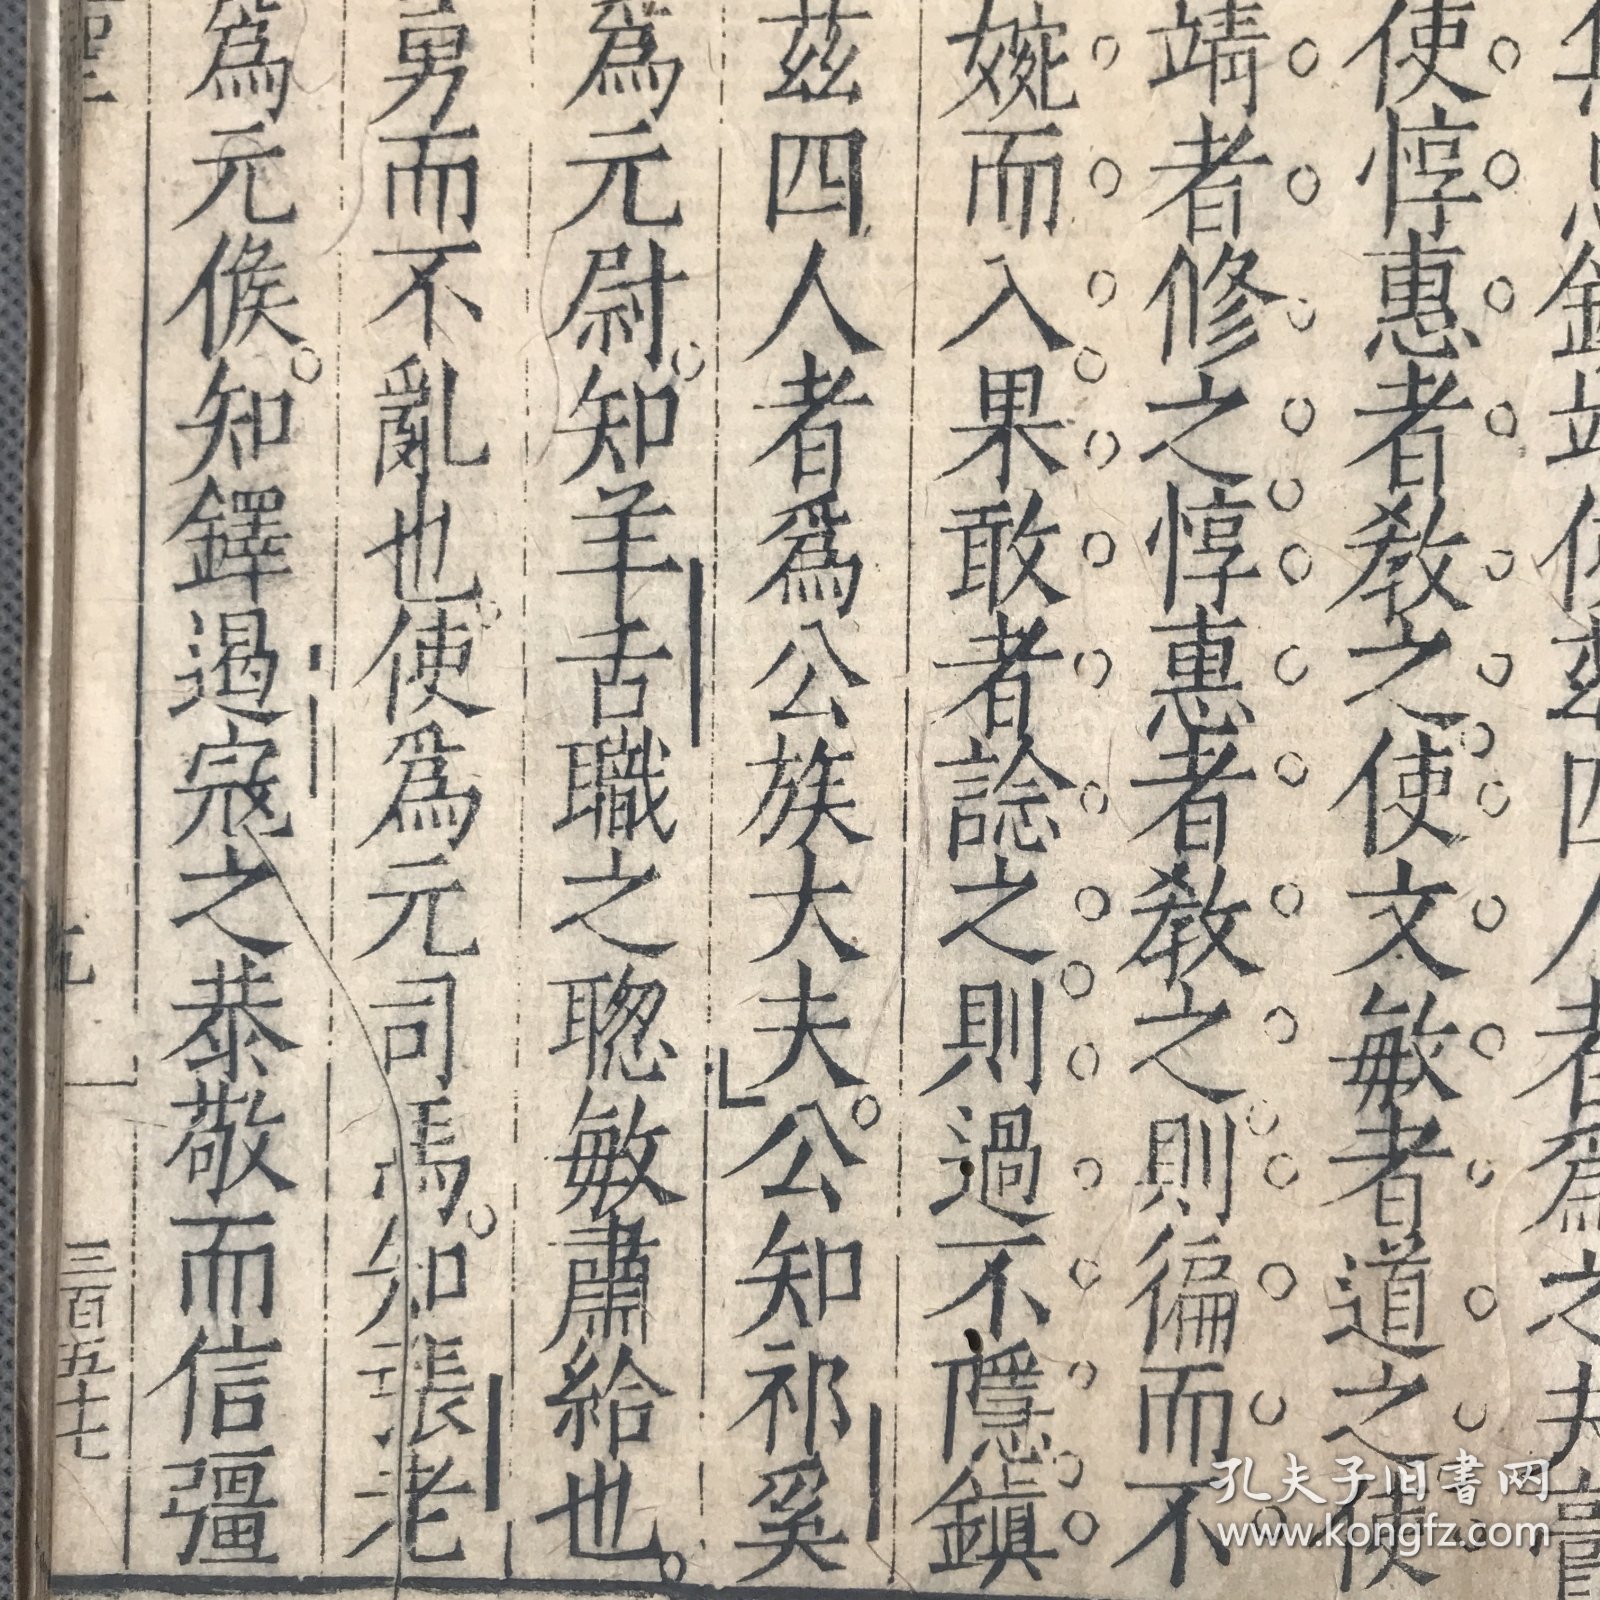 鎮靖使茲四人者爲之夫膏
使惇惠者敎之使文敏者道之使
靖者修之惇惠者敎之則徧而不
婉而入果敢者諗之則過不隱鎮
茲四人者爲公族大夫公知祁奚
爲元尉知羊舌職之聦敏肅給也
勇而不亂也使爲元司馬知張老
爲元候知鐸遏宼之恭敬而信彊
三百五十七
孔夫子旧书网
www.kongfz.com